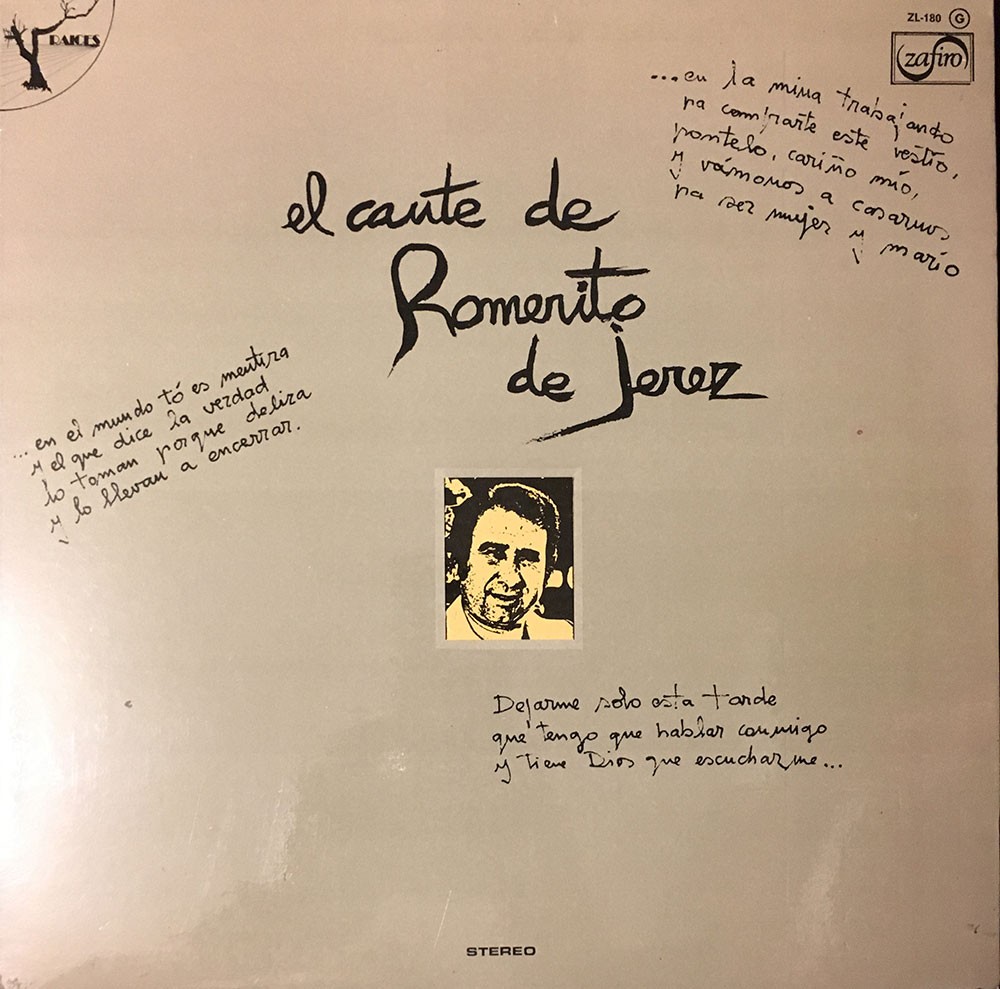 RAICES
ZL-180 G
zafiro
...en la mina trabajando
pa comprarte este vestío,
pontelo, cariño mío,
y vámonos a casarnos
pa ser mujer y marío
el cante de
Romerito
de Jerez
...en el mundo tó es mentira
y el que dice la verdad
lo toman porque delira
y lo llevan a encerrar.
Dejarme solo esta tarde
que tengo que hablar conmigo
y tiene Dios que escucharme...
STEREO